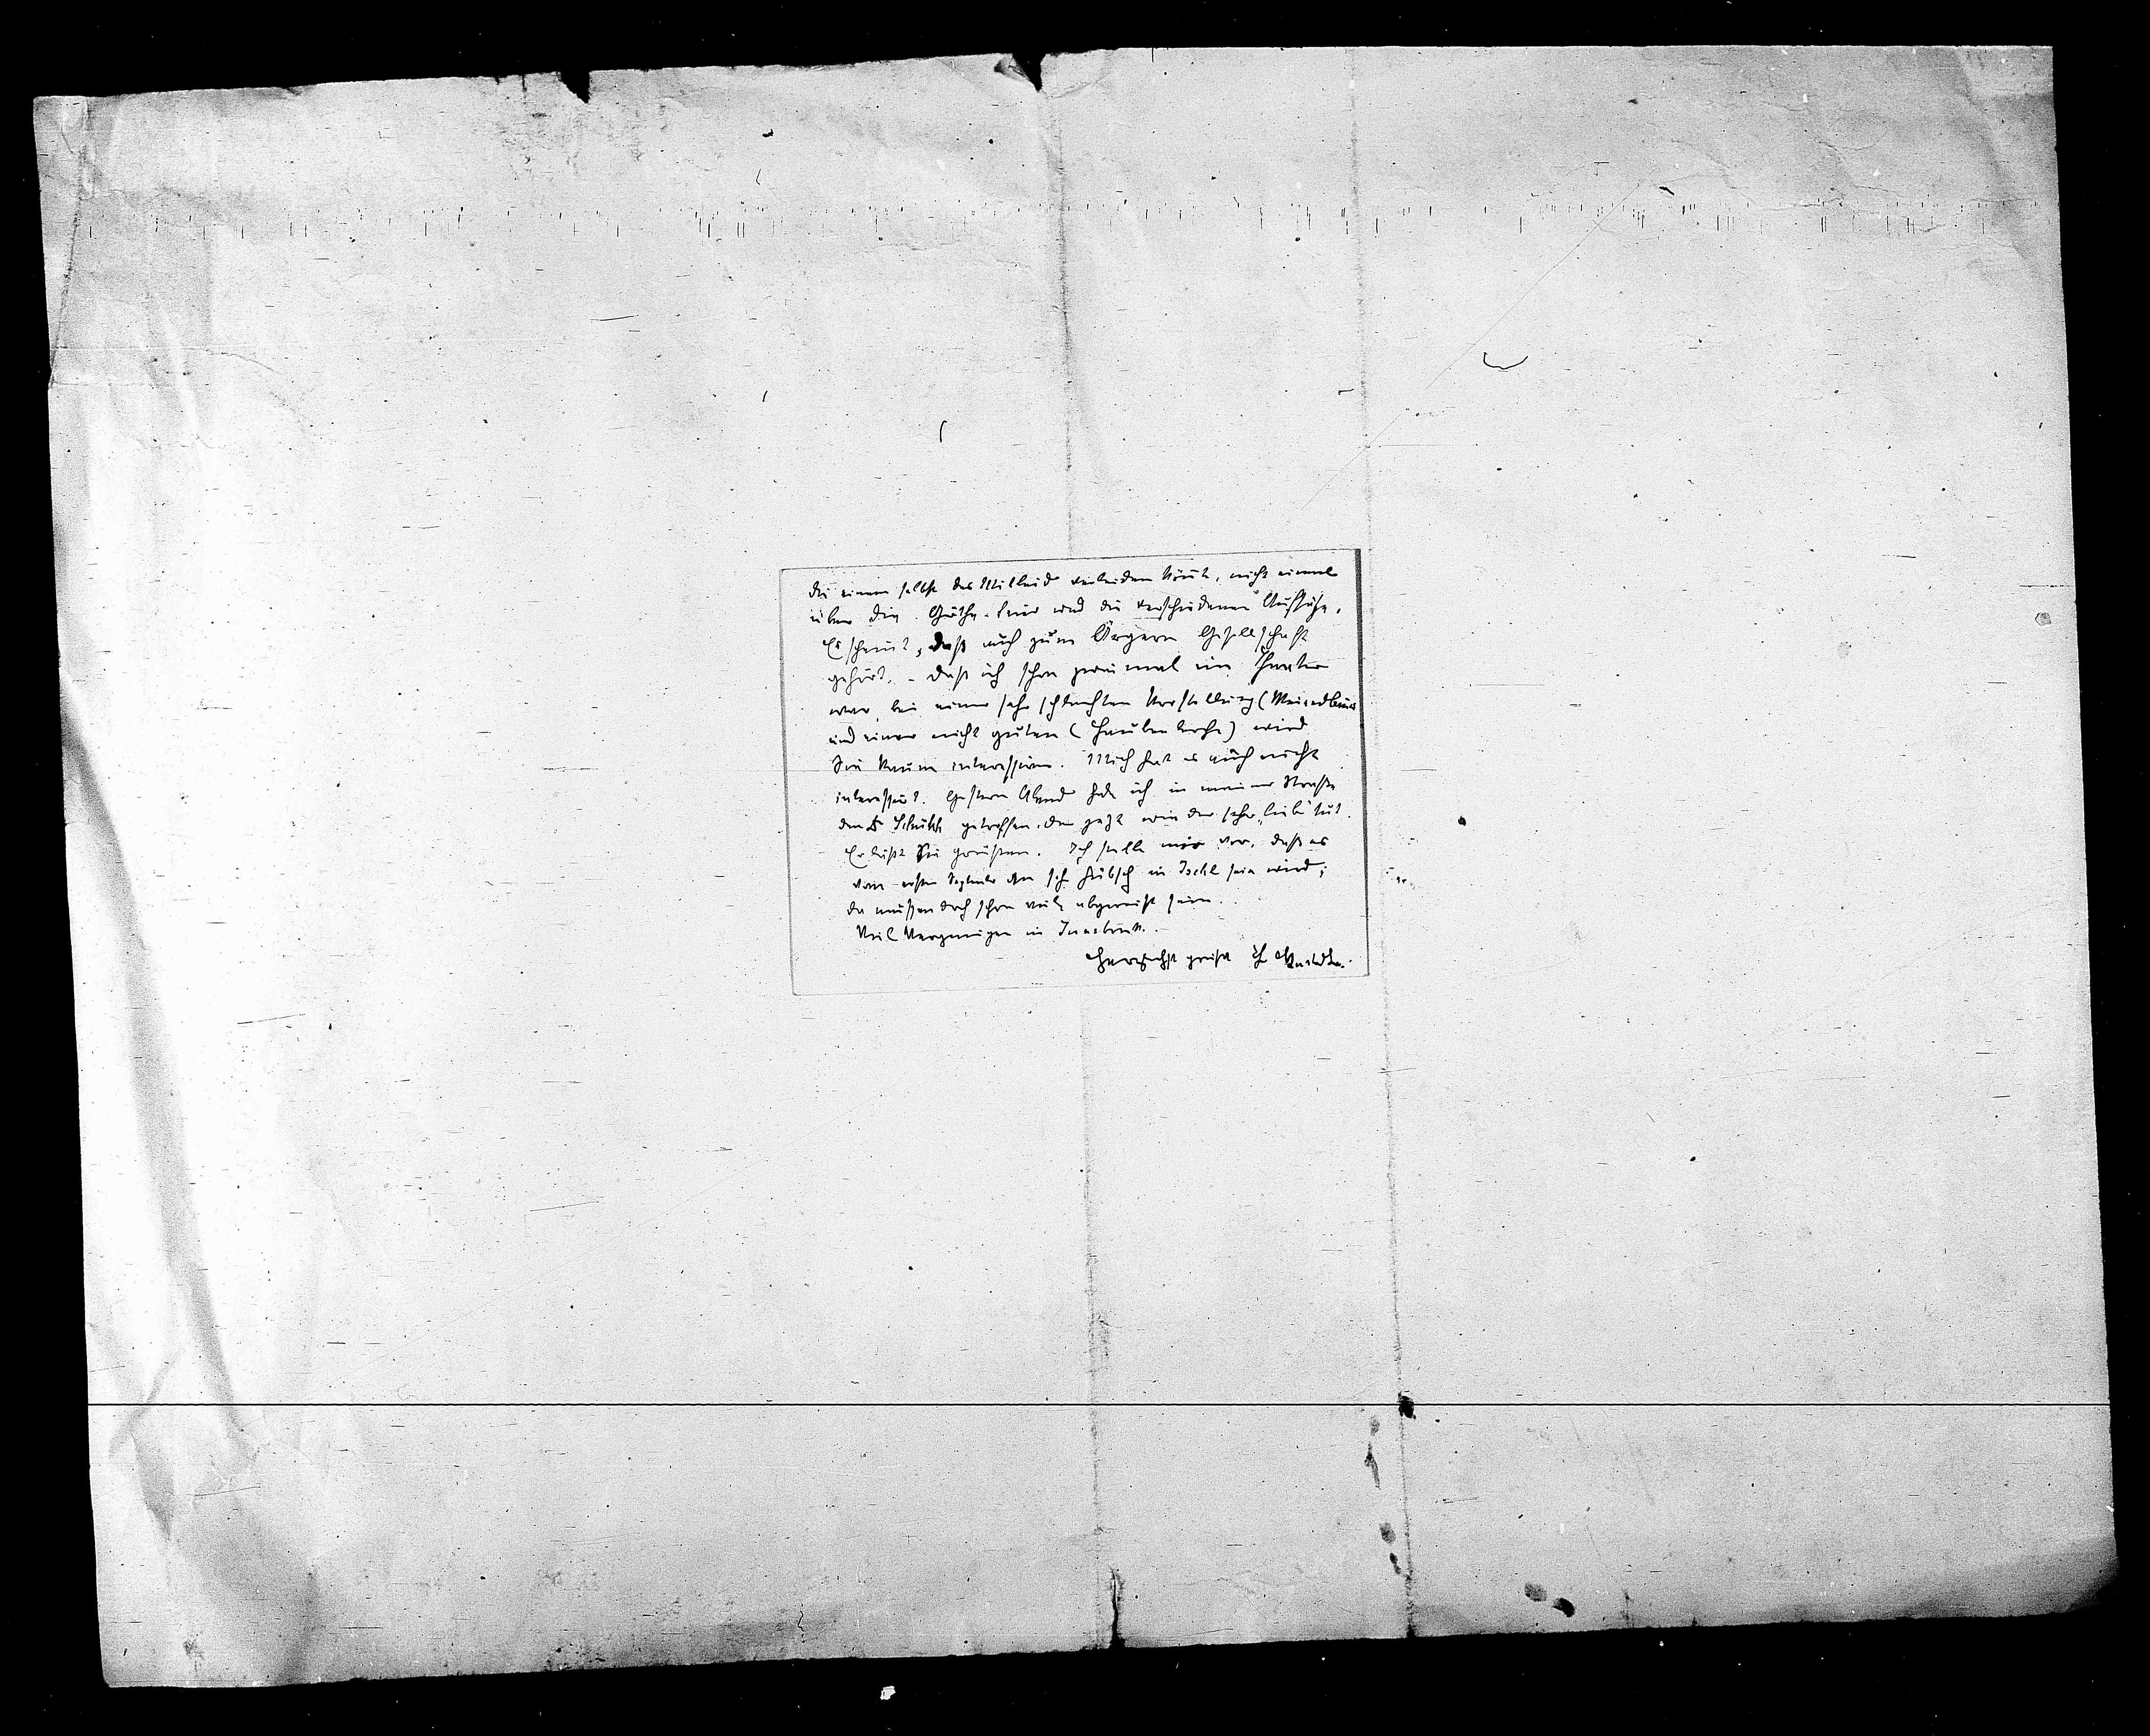 die einem selbst das Mitleid verleiden könnte, nicht einmal
über die Göthe-Feier und die verschiedenen Aufsätze.
Es scheint, daß auch zum Ärgern Gesellschaft
gehört. – Daß ich schon zweimal im Theater
war, bei einer sehr schlechten Vorstellung (Meineidbauer
und einer nicht guten (Haubenlerche) wird
Sie kaum interessiren. Mich hat es auch nicht
interessirt. Gestern Abend hab ich in meiner Straße
den Dr getroffen. der jetzt wieder sehr „lieb“ tut.
Er läßt Sie grüßen. Ich stelle mir vor, daß es
vom ersten September an sehr hübsch in Ischl sein wird;
da müssen doch schon viele abgereist sein.
Viel Vergnügen in Innsbruck.
Herzlichst grüßt Ihr